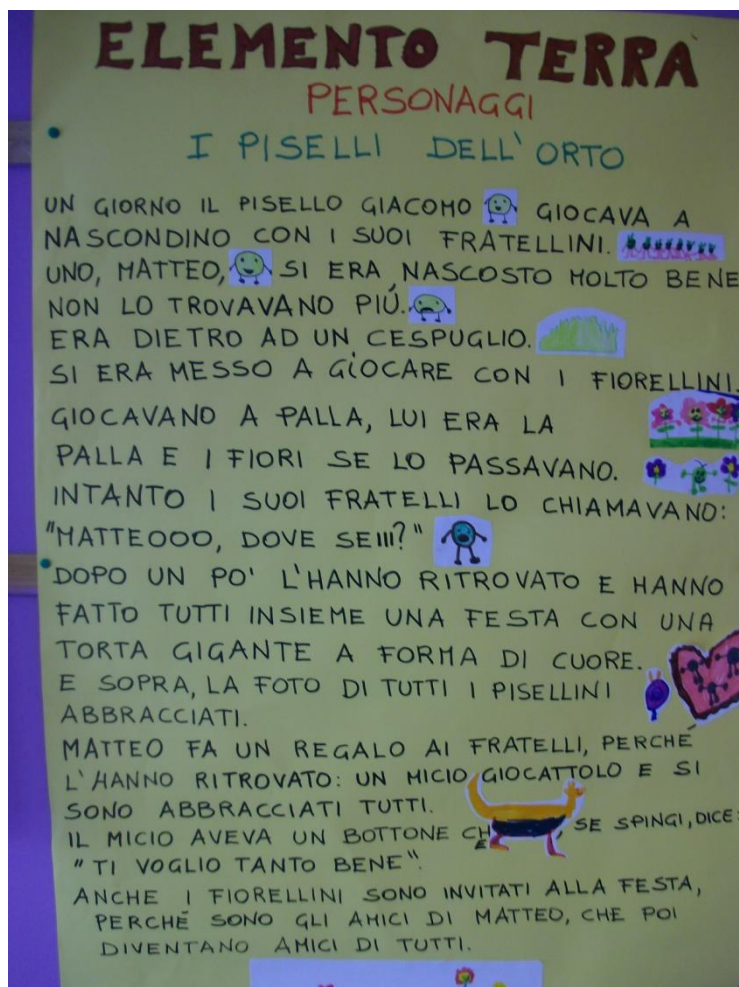 ELEMENTO TERRA
PERSONAGGI
I PISELLI DELL'ORTO
UN GIORNO IL PISELLO GIACOMO GIOCAVA A
NASCONDINO CON I SUOI FRATELLINI.
UNO, MATTEO, SI ERA NASCOSTO MOLTO BENE
NON LO TROVAVANO PIÚ.
ERA DIETRO AD UN CESPUGLIO.
SI ERA MESSO A GIOCARE CON I FIORELLINI.
GIOCAVANO A PALLA, LUI ERA LA
PALLA E I FIORI SE LO PASSAVANO.
INTANTO I SUOI FRATELLI LO CHIAMAVANO:
"MATTEOOO, DOVE SEIII?"
DOPO UN PO' L'HANNO RITROVATO E HANNO
FATTO TUTTI INSIEME UNA FESTA CON UNA
TORTA GIGANTE A FORMA DI CUORE.
E SOPRA, LA FOTO DI TUTTI I PISELLINI
ABBRACCIATI.
MATTEO FA UN REGALO AI FRATELLI, PERCHÉ
L'HANNO RITROVATO: UN MICIO GIOCATTOLO E SI
SONO ABBRACCIATI TUTTI.
IL MICIO AVEVA UN BOTTONE CHE, SE SPINGI, DICE:
"TI VOGLIO TANTO BENE".
ANCHE I FIORELLINI SONO INVITATI ALLA FESTA,
PERCHÉ SONO GLI AMICI DI MATTEO, CHE POI
DIVENTANO AMICI DI TUTTI.